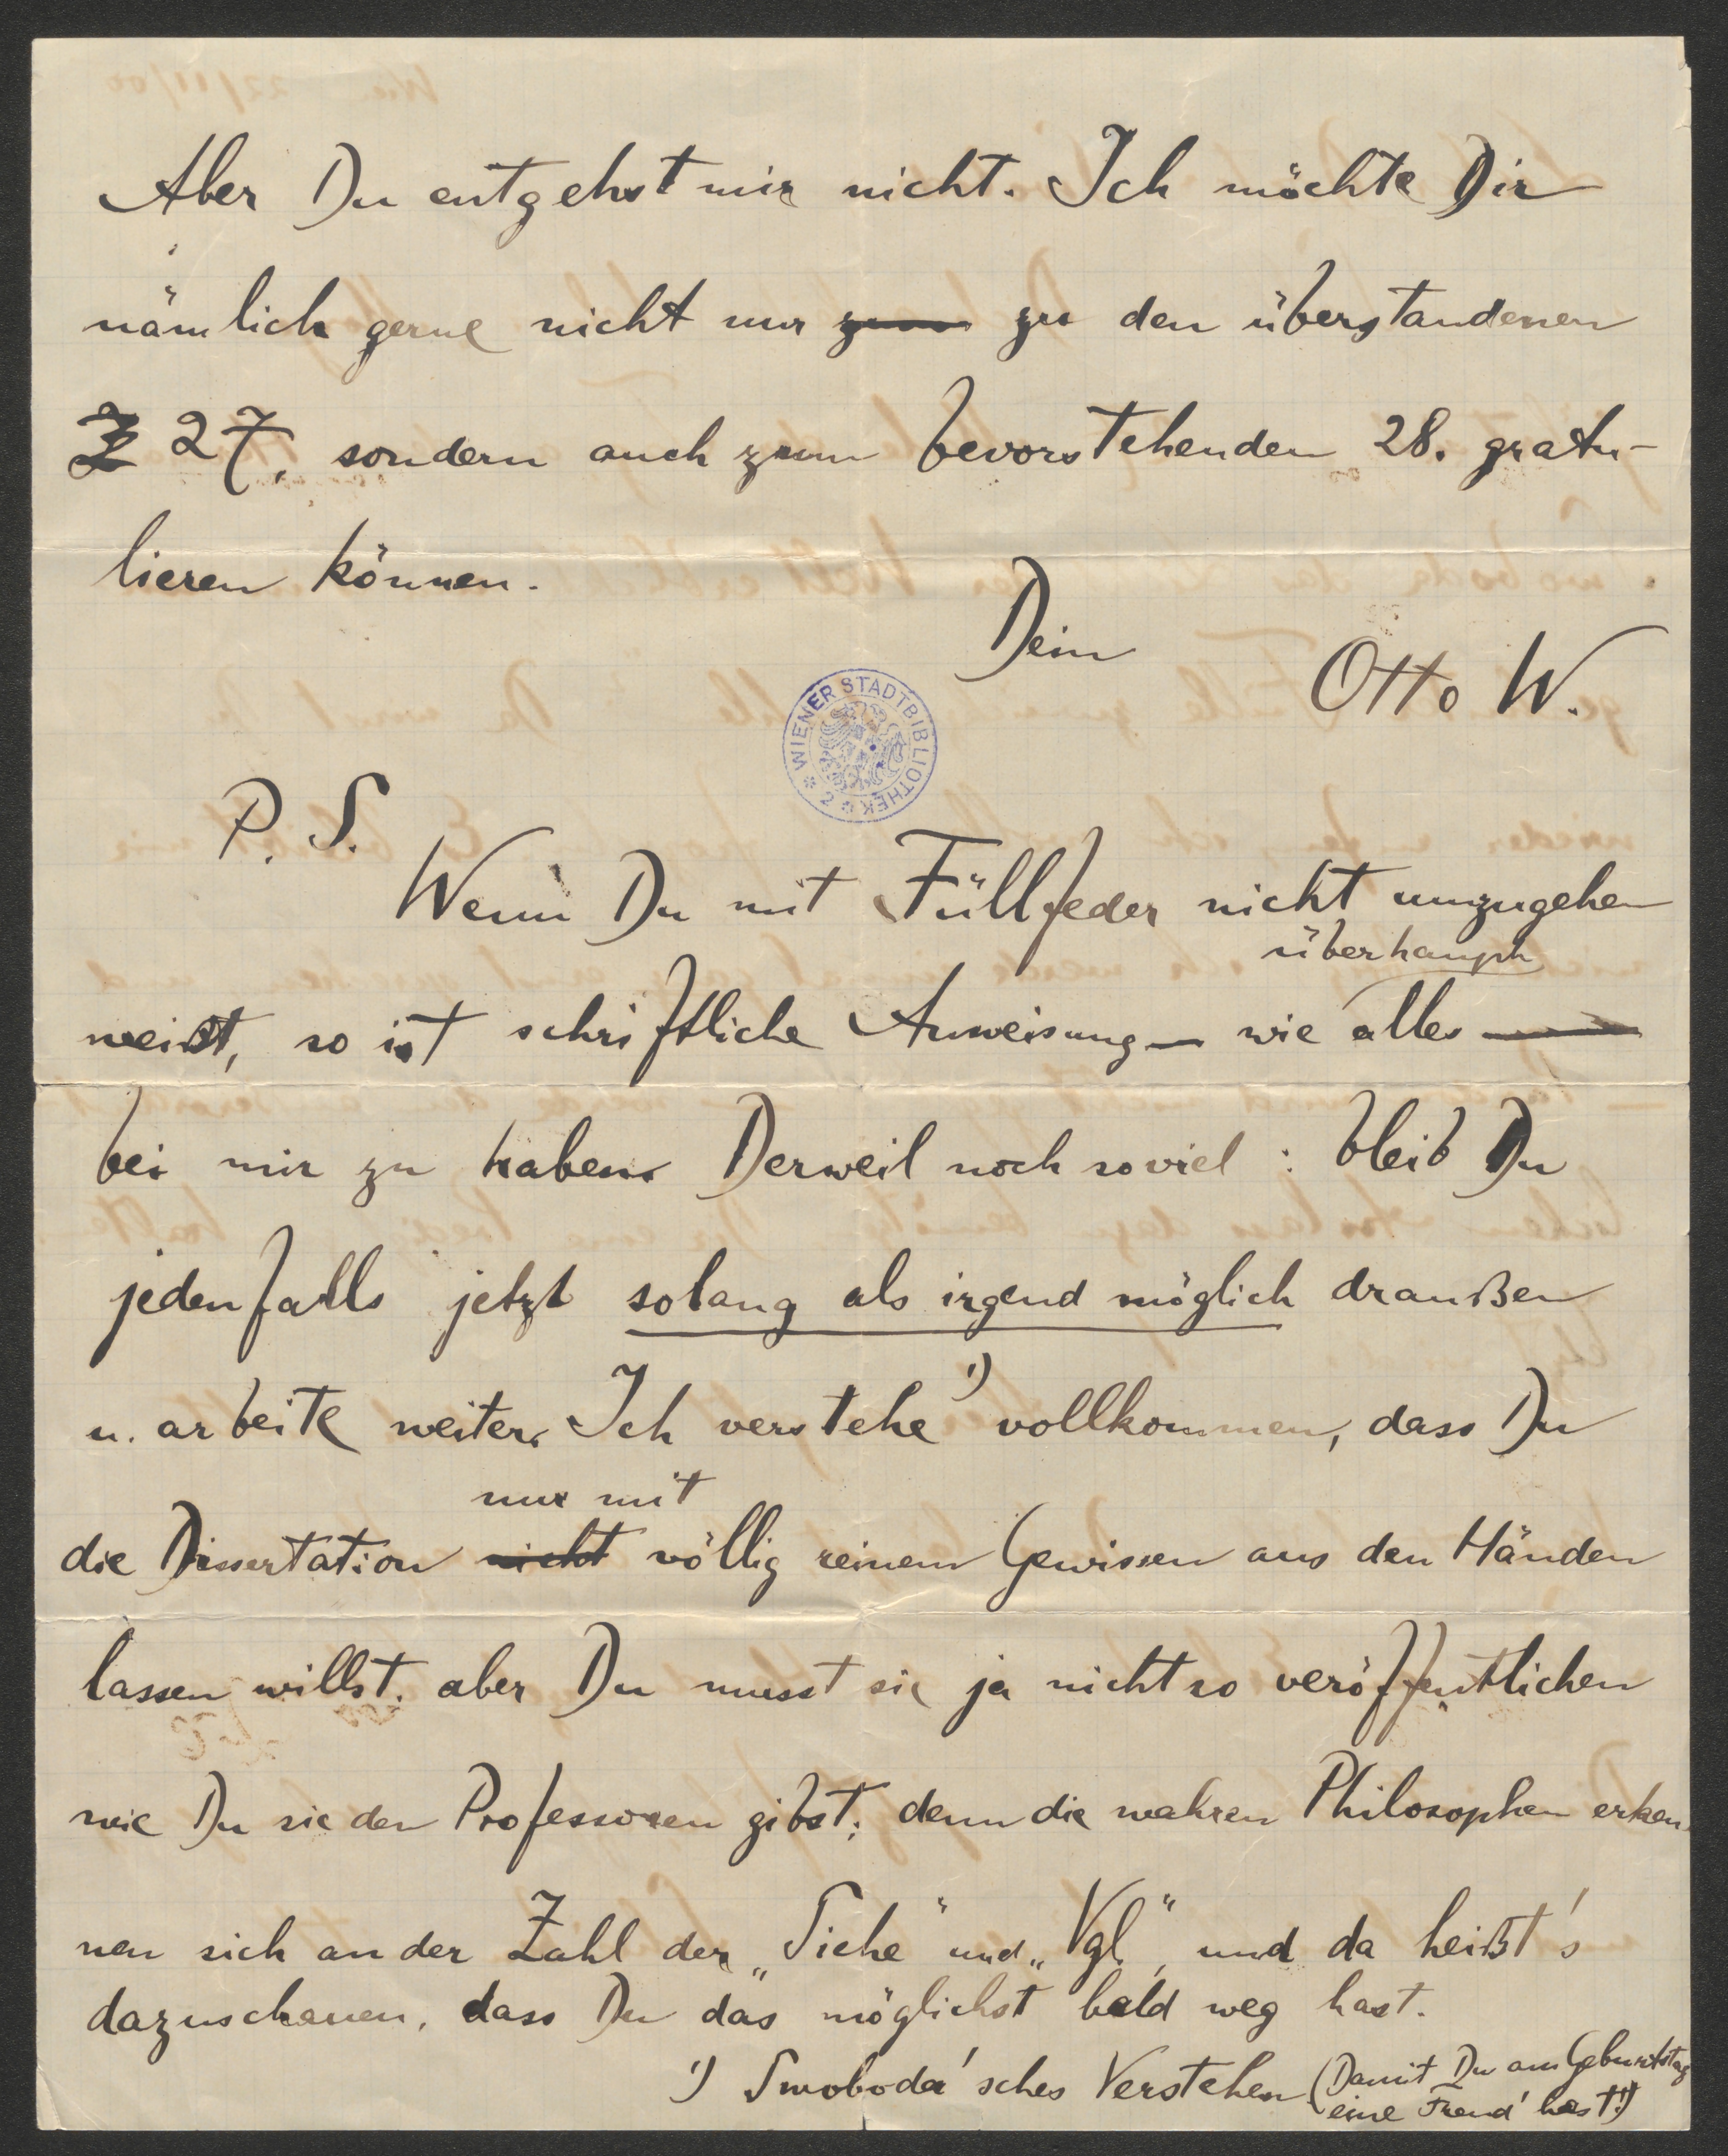 Aber Du entgehst mir nicht. Ich möchte Dir
nämlich gerne nicht nur zum zu den überstandenen
Z 27, sondern auch zum bevorstehenden 28. gratu-
lieren können.
Dein
Otto W.
WIENER STADTBIBLIOTHEK * 2 *
P. S.
Wenn Du mit Füllfeder nicht umzugehen
überhaupt
weißt, so ist schriftliche Anweisung – wie alles
bei mir zu haben. Derweil noch soviel: bleib Du
jedenfalls jetzt solang als irgend möglich draußen
u. arbeite weiter. Ich verstehe 1) vollkommen, dass Du
nur mit
die Dissertation nicht völlig reinem Gewissen aus den Händen
lassen willst. aber Du musst sie ja nicht so veröffentlichen
wie Du sie den Professoren gibst; denn die wahren Philosophen erken-
nen sich an der Zahl der „Siehe“ und „Vgl.“, und da heißt's
dazuschauen, dass Du das möglichst bald weg hast.
1) Swoboda'sches Verstehen (Damit Du am Geburtstag
eine Freud' hast!)